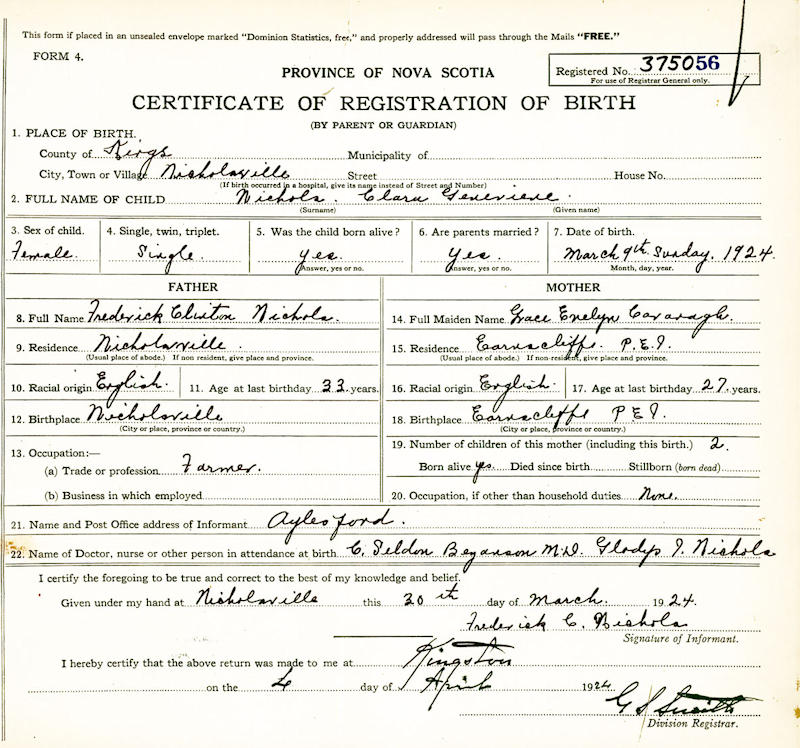 This form if placed in an unsealed envelope marked "Dominion Statistics, free," and properly addressed will pass through the Mails "FREE."
FORM 4.
Registered No. 375056
For use of Registrar General only.
PROVINCE OF NOVA SCOTIA
CERTIFICATE OF REGISTRATION OF BIRTH
(BY PARENT OR GUARDIAN)
1. PLACE OF BIRTH.
County of Kings Municipality of
City, Town or Village Nicholsville Street House No.
(If birth occurred in a hospital, give its name instead of Street and Number)
2. FULL NAME OF CHILD Nichols. Clara Genevieve.
(Surname) (Given name)
3. Sex of child. 4. Single, twin, triplet. 5. Was the child born alive? 6. Are parents married? 7. Date of birth.
Female. Single. yes. Yes. March 9th Sunday, 1924.
Answer, yes or no. Answer, yes or no. Month, day, year.
FATHER MOTHER
8. Full Name Frederick Clinton Nichols. 14. Full Maiden Name Grace Evelyn Cavanagh.
9. Residence Nicholsville. 15. Residence Earnscliffe. P.E.I.
(Usual place of abode.) If non resident, give place and province. (Usual place of abode.) If non-resident, give place and province.
10. Racial origin English. 11. Age at last birthday 33 years. 16. Racial origin English. 17. Age at last birthday 27 years.
12. Birthplace Nicholsville 18. Birthplace Earnscliffe P.E.I.
(City or place, province or country.) (City or place, province or country.)
13. Occupation:— 19. Number of children of this mother (including this birth.) 2.
(a) Trade or profession Farmer. Born alive yes. Died since birth Stillborn (born dead)
(b) Business in which employed 20. Occupation, if other than household duties None.
21. Name and Post Office address of Informant Aylesford.
22. Name of Doctor, nurse or other person in attendance at birth C. Seldon M.D. Gladys I. Nichols
I certify the foregoing to be true and correct to the best of my knowledge and belief.
Given under my hand at Nicholsville this 30th day of March. 1924.
Frederick C. Nichols
Signature of Informant.
I hereby certify that the above return was made to me at Kingston
on the 4 day of April 1924
G S Smith
Division Registrar.